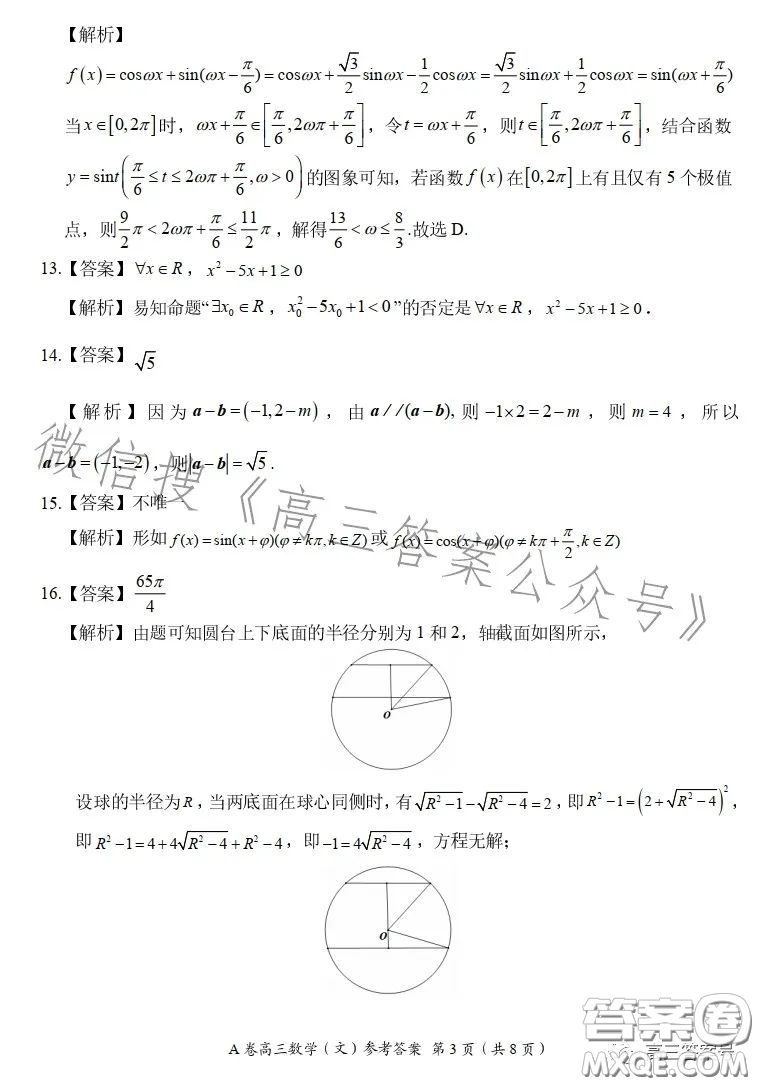 【解析】
f(x)=cosωx+sin(ωx-π/6)=cosωx+√3/2 sinωx-1/2 cosωx=√3/2 sinωx+1/2 cosωx=sin(ωx+π/6)
当x∈[0,2π]时，ωx+π/6∈[π/6,2ωπ+π/6]，令t=ωx+π/6，则t∈[π/6,2ωπ+π/6]，结合函数
y=sint(π/6≤t≤2ωπ+π/6,ω>0)的图象可知，若函数f(x)在[0,2π]上有且仅有5个极值
点，则9/2π<2ωπ+π/6≤11/2π，解得13/6<ω≤8/3.故选D.
13.【答案】∀x∈R，x²-5x+1≥0
【解析】易知命题“∃x₀∈R，x₀²-5x₀+1<0”的否定是∀x∈R，x²-5x+1≥0．
14.【答案】√5
【解析】因为a-b=(-1,2-m)，由a//(a-b),则-1×2=2-m，则m=4，所以
a-b=(-1,-2)，则|a-b|=√5.
15.【答案】不唯一
【解析】形如f(x)=sin(x+φ)(φ≠kπ,k∈Z)或f(x)=cos(x+φ)(φ≠kπ+π/2,k∈Z)
16.【答案】65π/4
【解析】由题可知圆台上下底面的半径分别为1和2，轴截面如图所示，
O
设球的半径为R，当两底面在球心同侧时，有√(R²-1)-√(R²-4)=2，即R²-1=(2+√(R²-4))²，
即R²-1=4+4√(R²-4)+R²-4，即-1=4√(R²-4)，方程无解；
O
A卷高三数学（文）参考答案 第3页（共8页）
微信搜《高三答案公众号》
答案卷
高三答案号
MXQE.COM